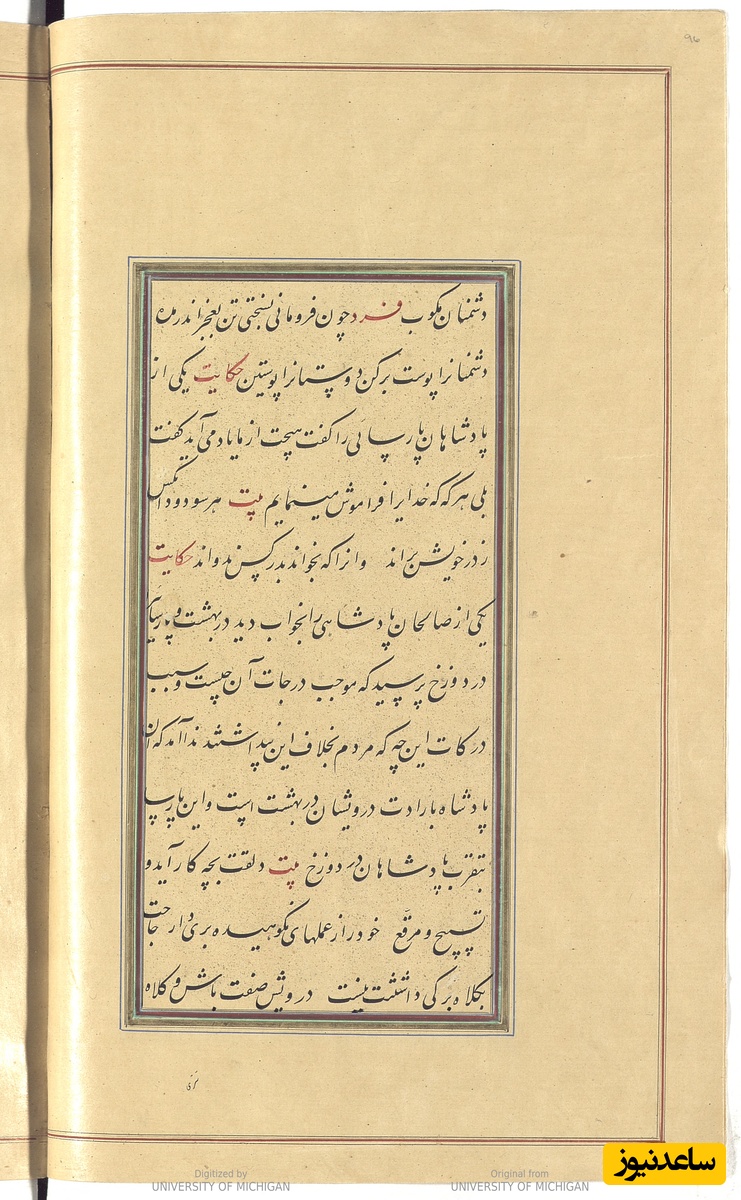 96
دشمنان مکوب فرد چون فرومانی بسختی تن بعجز اندر مده
دشمنانرا پوست برکن دوستانرا پوستین حکایت یکی از
پادشاهان پارسائی را گفت هیچت از ما یاد می آید گفت
بلی هرگه که خدایرا فراموش مینمایم بیت هر سو دود آنکس
ز در خویش براند وانرا که بخواند بدر کس ندواند حکایت
یکی از صالحان پادشاهی را بخواب دید در بهشت و پارسائی
در دوزخ پرسید که موجب درجات آن چیست و سبب
درکات این چه که مردم بخلاف این می‌پنداشتند ندا آمد که آن
پادشاه بارادت درویشان در بهشت است و این پارسا
بتقرب پادشاهان در دوزخ بیت دلقت بچه کار آید و
تسبیح و مرقع خود را ز عملهای نکوهیده بری دار حاجت
بکلاه برکی داشتنت نیست درویش صفت باش و کلاه
Digitized by
UNIVERSITY OF MICHIGAN
Original from
UNIVERSITY OF MICHIGAN
ساعدنیوز